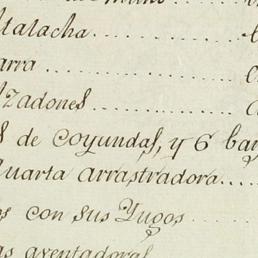 Atalacha
arra
Azadones
s de coyundas, y 6 bar
Cuarta arrastradora
os con sus Yugos
as aventadoras